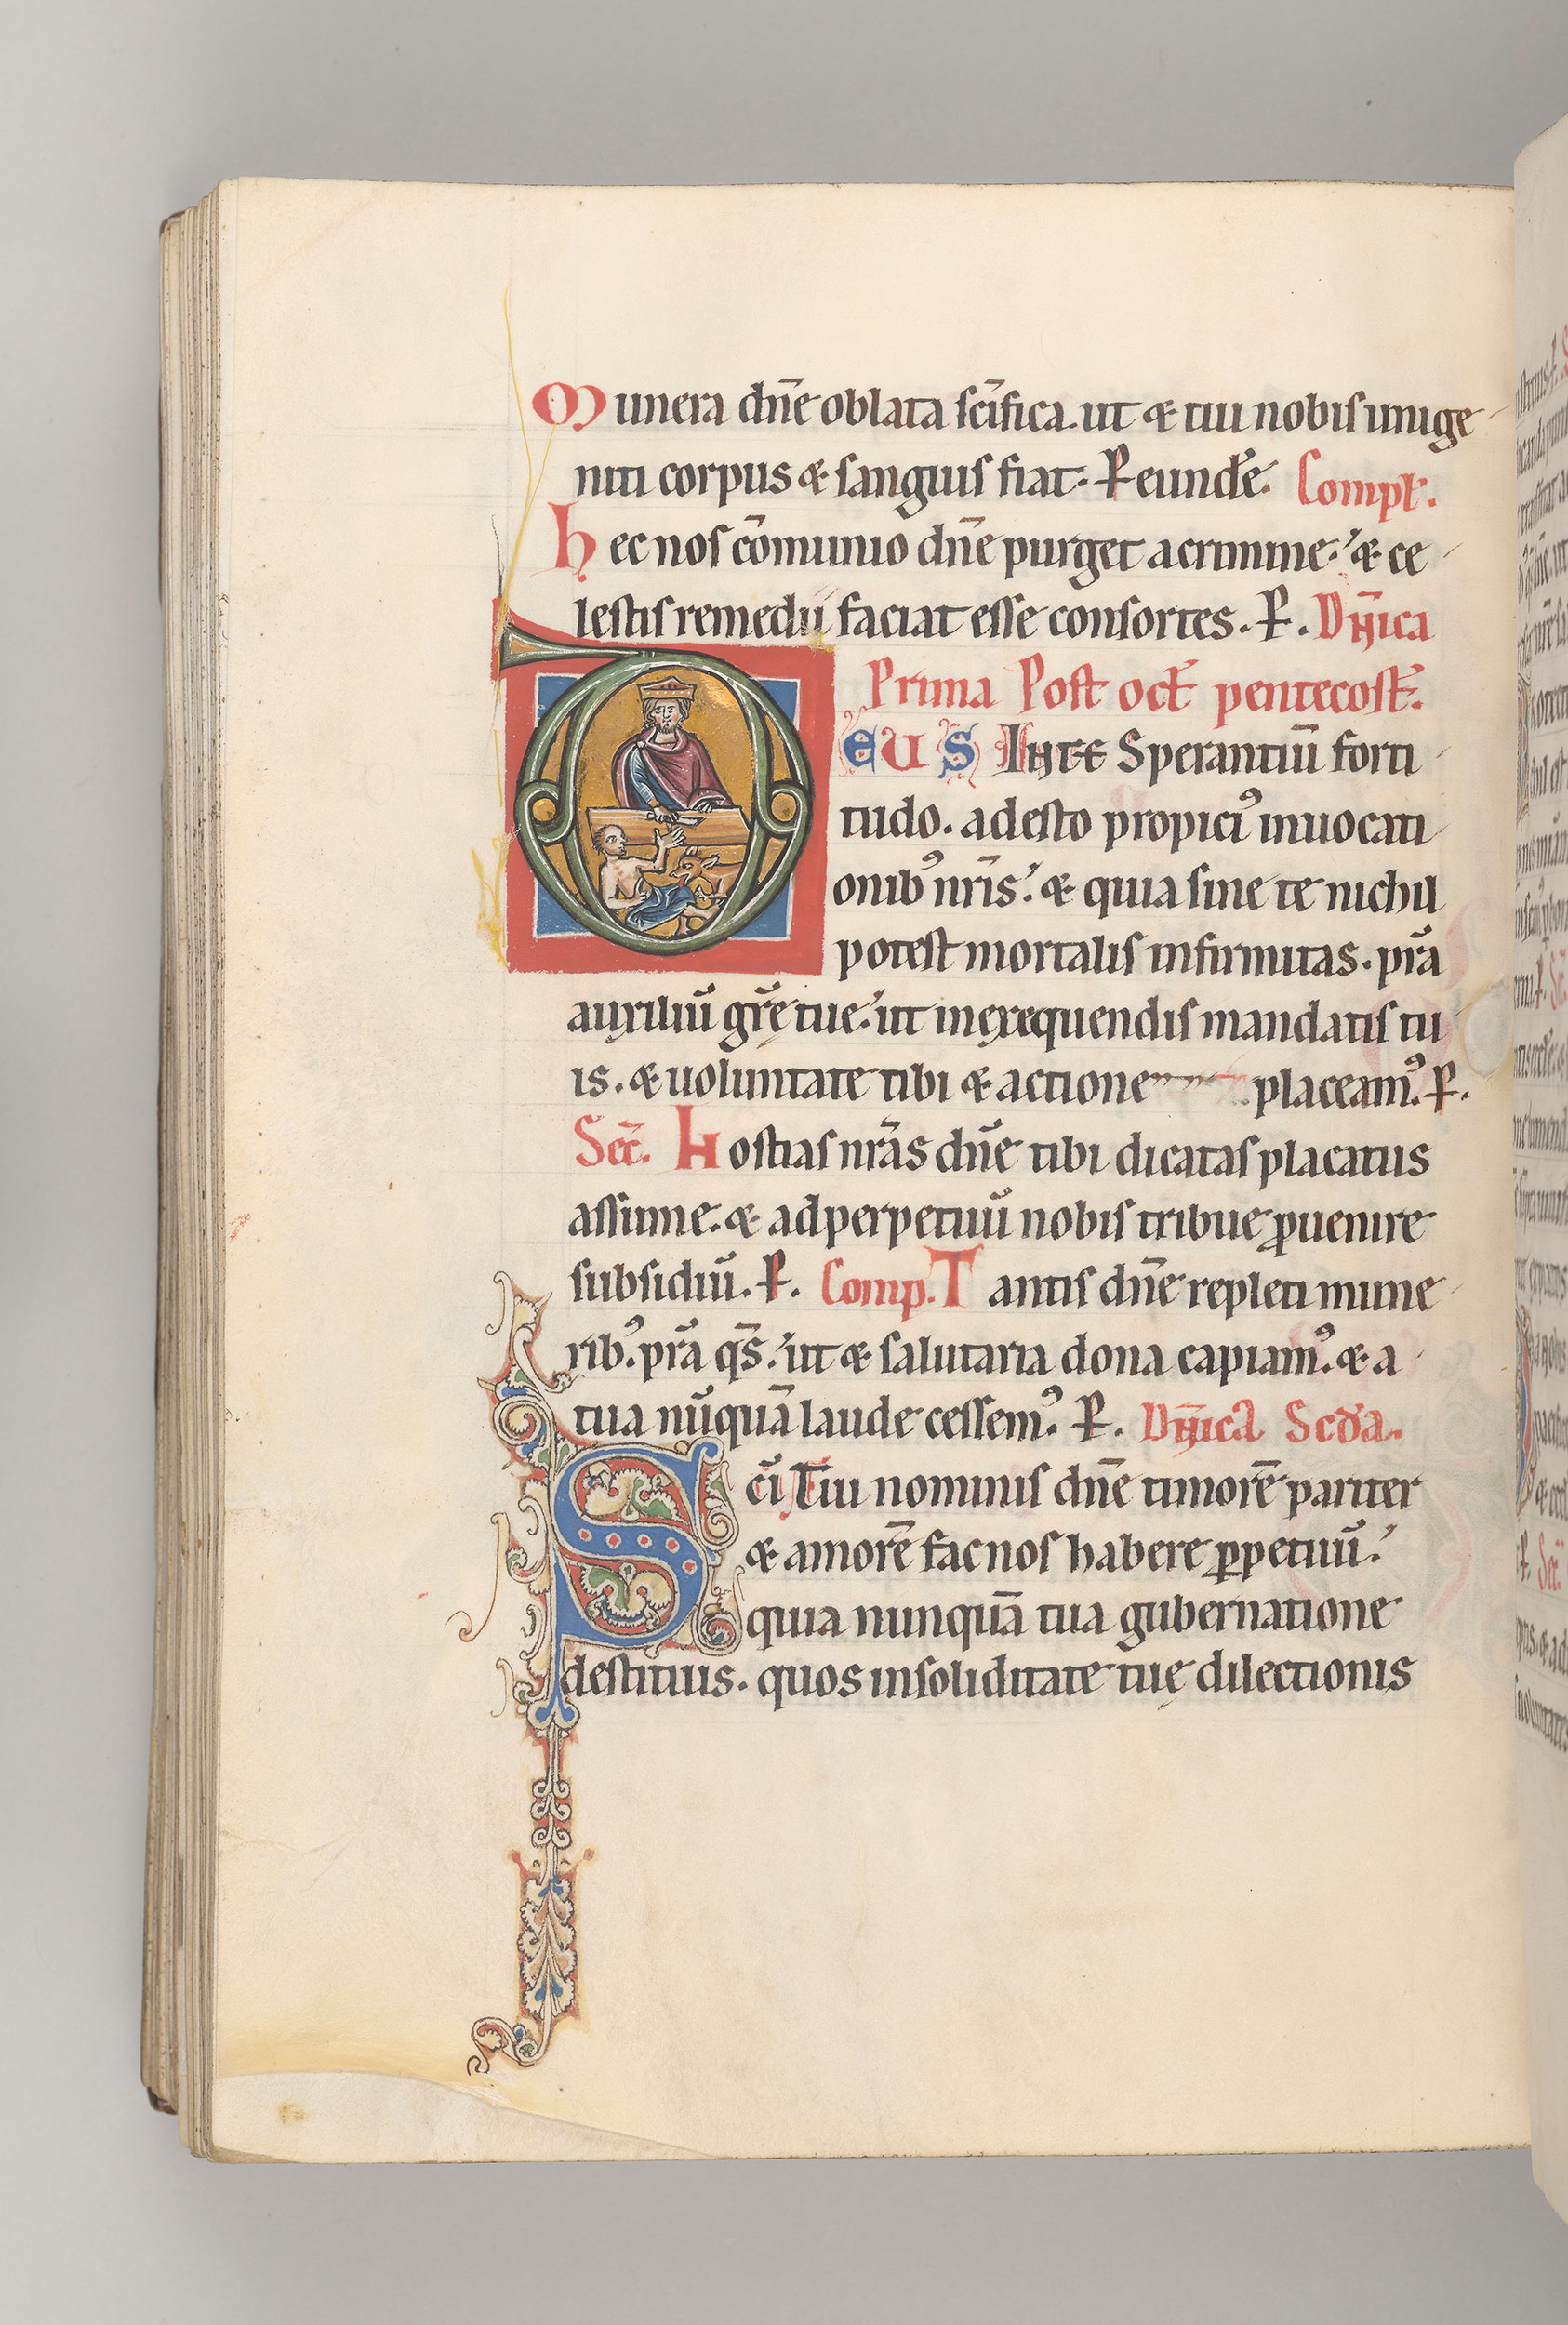 Munera dn̄e oblata sc̄ifica. ut & tui nobis unige
niti corpus & sanguis fiat. P eund̄e. Compl̄.
Hec nos cōmunio dn̄e purget a crimine. & ce
lestis remedii faciat esse consortes. P. Dn̄ica
Prima Post oct̄ pentecost̄.
DEUS In te Sperantiū forti
tudo. adesto propiciꝰ inuocati
onibꝰ nr̄is. & quia sine te nichil
potest mortalis infirmitas. pr̄a
auxiliū gr̄e tue. ut in exequendis mandatis tu
is. & uoluntate tibi & actione placeamꝰ. P.
Sec̄. Hostias nr̄as dn̄e tibi dicatas placatus
assume. & ad perpetuū nobis tribue ꝓuenire
subsidiū. P. Comp. Tantis dn̄e repleti mune
ribꝰ. pr̄a qs̄. ut & salutaria dona capiamꝰ. & a
tua nūquā laude cessemꝰ. P. Dn̄ica Scd̄a.
Sc̄i Tui nominis dn̄e timorē pariter
& amorē fac nos habere ꝑpetuū.
quia nunquā tua gubernatione
destituis. quos in soliditate tuę dilectionis